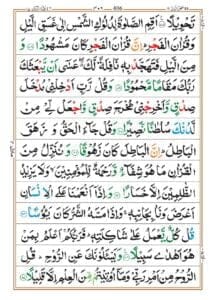 تَحْوِيْلًا اَقِمِ الصَّلٰوةَ لِدُلُوْكِ الشَّمْسِ اِلٰى غَسَقِ الَّيْلِ
وَقُرْاٰنَ الْفَجْرِ اِنَّ قُرْاٰنَ الْفَجْرِ كَانَ مَشْهُوْدًا وَ
مِنَ الَّيْلِ فَتَهَجَّدْ بِهٖ نَافِلَةً لَّكَ عَسٰٓى اَنْ يَّبْعَثَكَ
رَبُّكَ مَقَامًا مَّحْمُوْدًا وَقُلْ رَّبِّ اَدْخِلْنِيْ مُدْخَلَ
صِدْقٍ وَّاَخْرِجْنِيْ مُخْرَجَ صِدْقٍ وَّاجْعَلْ لِّيْ مِنْ
لَّدُنْكَ سُلْطٰنًا نَّصِيْرًا وَقُلْ جَآءَ الْحَقُّ وَزَهَقَ
الْبَاطِلُ اِنَّ الْبَاطِلَ كَانَ زَهُوْقًا وَنُنَزِّلُ مِنَ
الْقُرْاٰنِ مَا هُوَ شِفَآءٌ وَّرَحْمَةٌ لِّلْمُؤْمِنِيْنَ وَلَا يَزِيْدُ
الظّٰلِمِيْنَ اِلَّا خَسَارًا وَاِذَآ اَنْعَمْنَا عَلَى الْاِنْسَانِ
اَعْرَضَ وَنَاٰ بِجَانِبِهٖ وَاِذَا مَسَّهُ الشَّرُّ كَانَ يَئُوْسًا
قُلْ كُلٌّ يَّعْمَلُ عَلٰى شَاكِلَتِهٖ فَرَبُّكُمْ اَعْلَمُ بِمَنْ هُوَ
اَهْدٰى سَبِيْلًا وَيَسْـَٔلُوْنَكَ عَنِ الرُّوْحِ قُلِ
الرُّوْحُ مِنْ اَمْرِ رَبِّيْ وَمَآ اُوْتِيْتُمْ مِّنَ الْعِلْمِ اِلَّا قَلِيْلًا